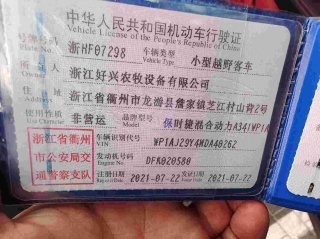 中华人民共和国机动车行驶证
Vehicle License of the People's Republic of China
号牌号码 浙HF07298 车辆类型 小型越野客车
Plate No. Vehicle Type
所有人 浙江好兴农牧设备有限公司
Owner
住址 浙江省衢州市龙游县詹家镇芝江村山背2号
Address
使用性质 非营运 品牌型号 保时捷混合动力
Use Character Model
浙江省衢州 车辆识别代号
市公安局交 VIN
通警察支队 发动机号码 DFK020580
Engine No.
注册日期 2021-07-22 发证日期 2021-07-22
Register Date Issue Date